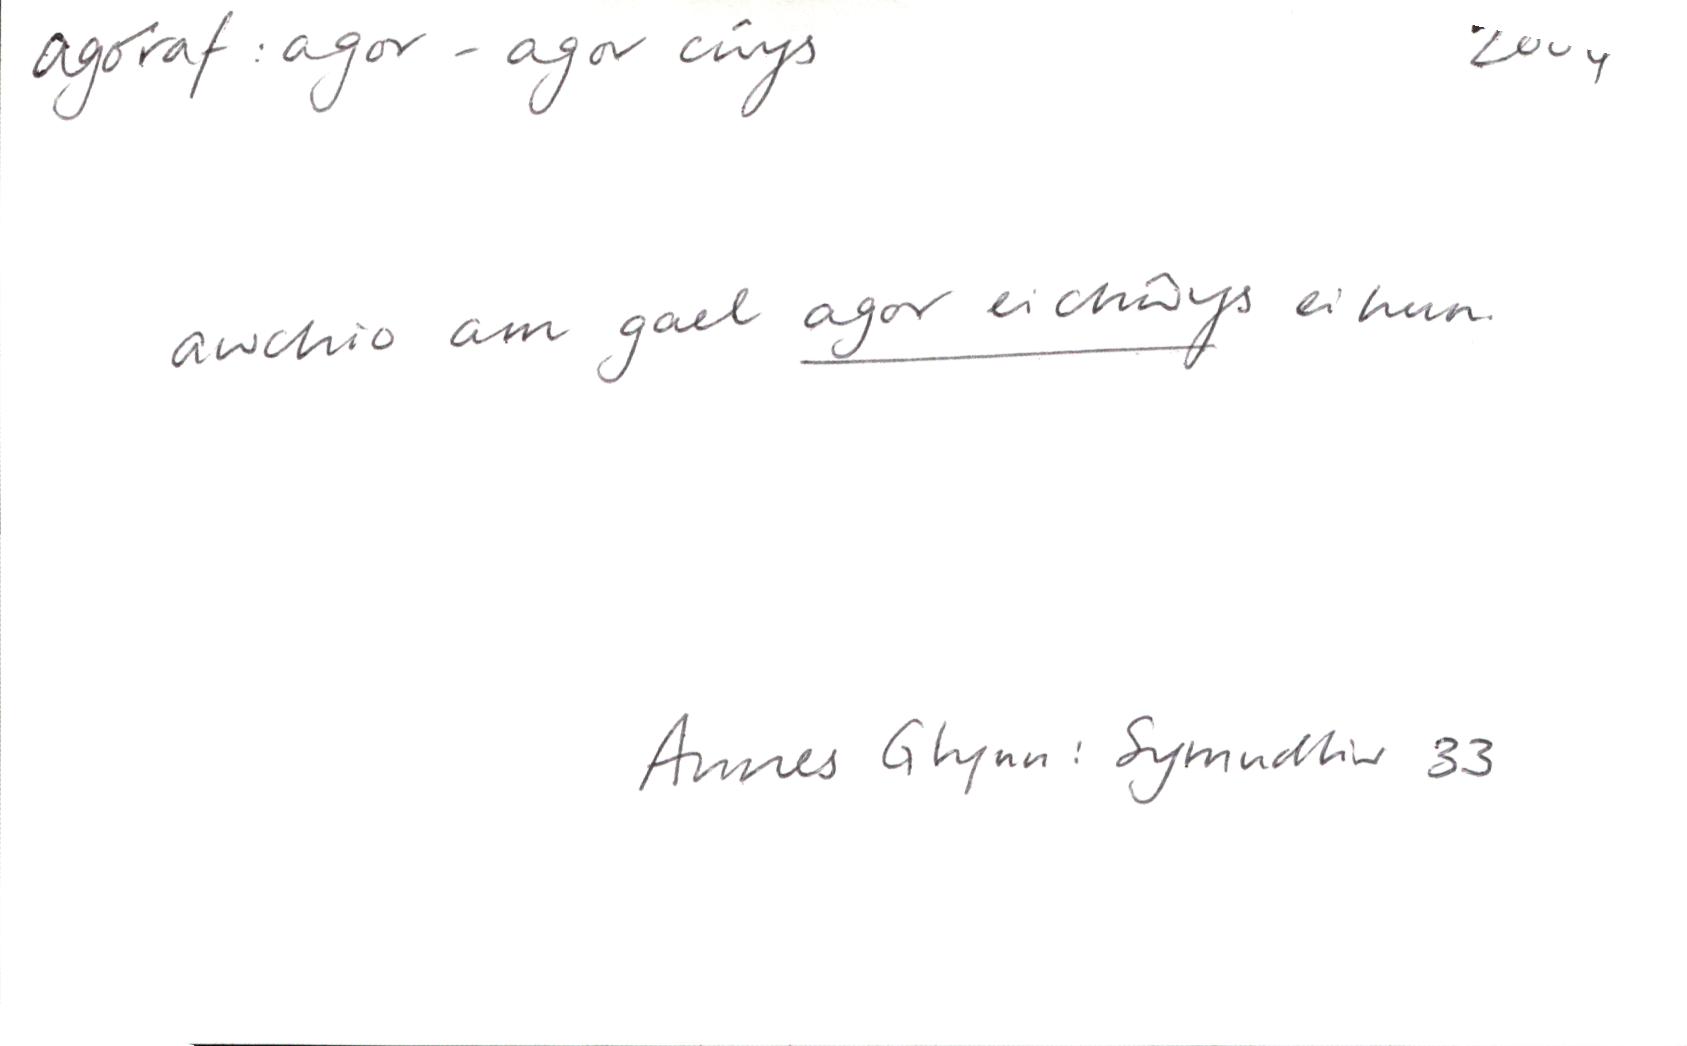 agoraf: agor - agor cŵys 2004
awchio am gael agor ei chŵys ei hun.
Annes Glynn: Symudliw 33